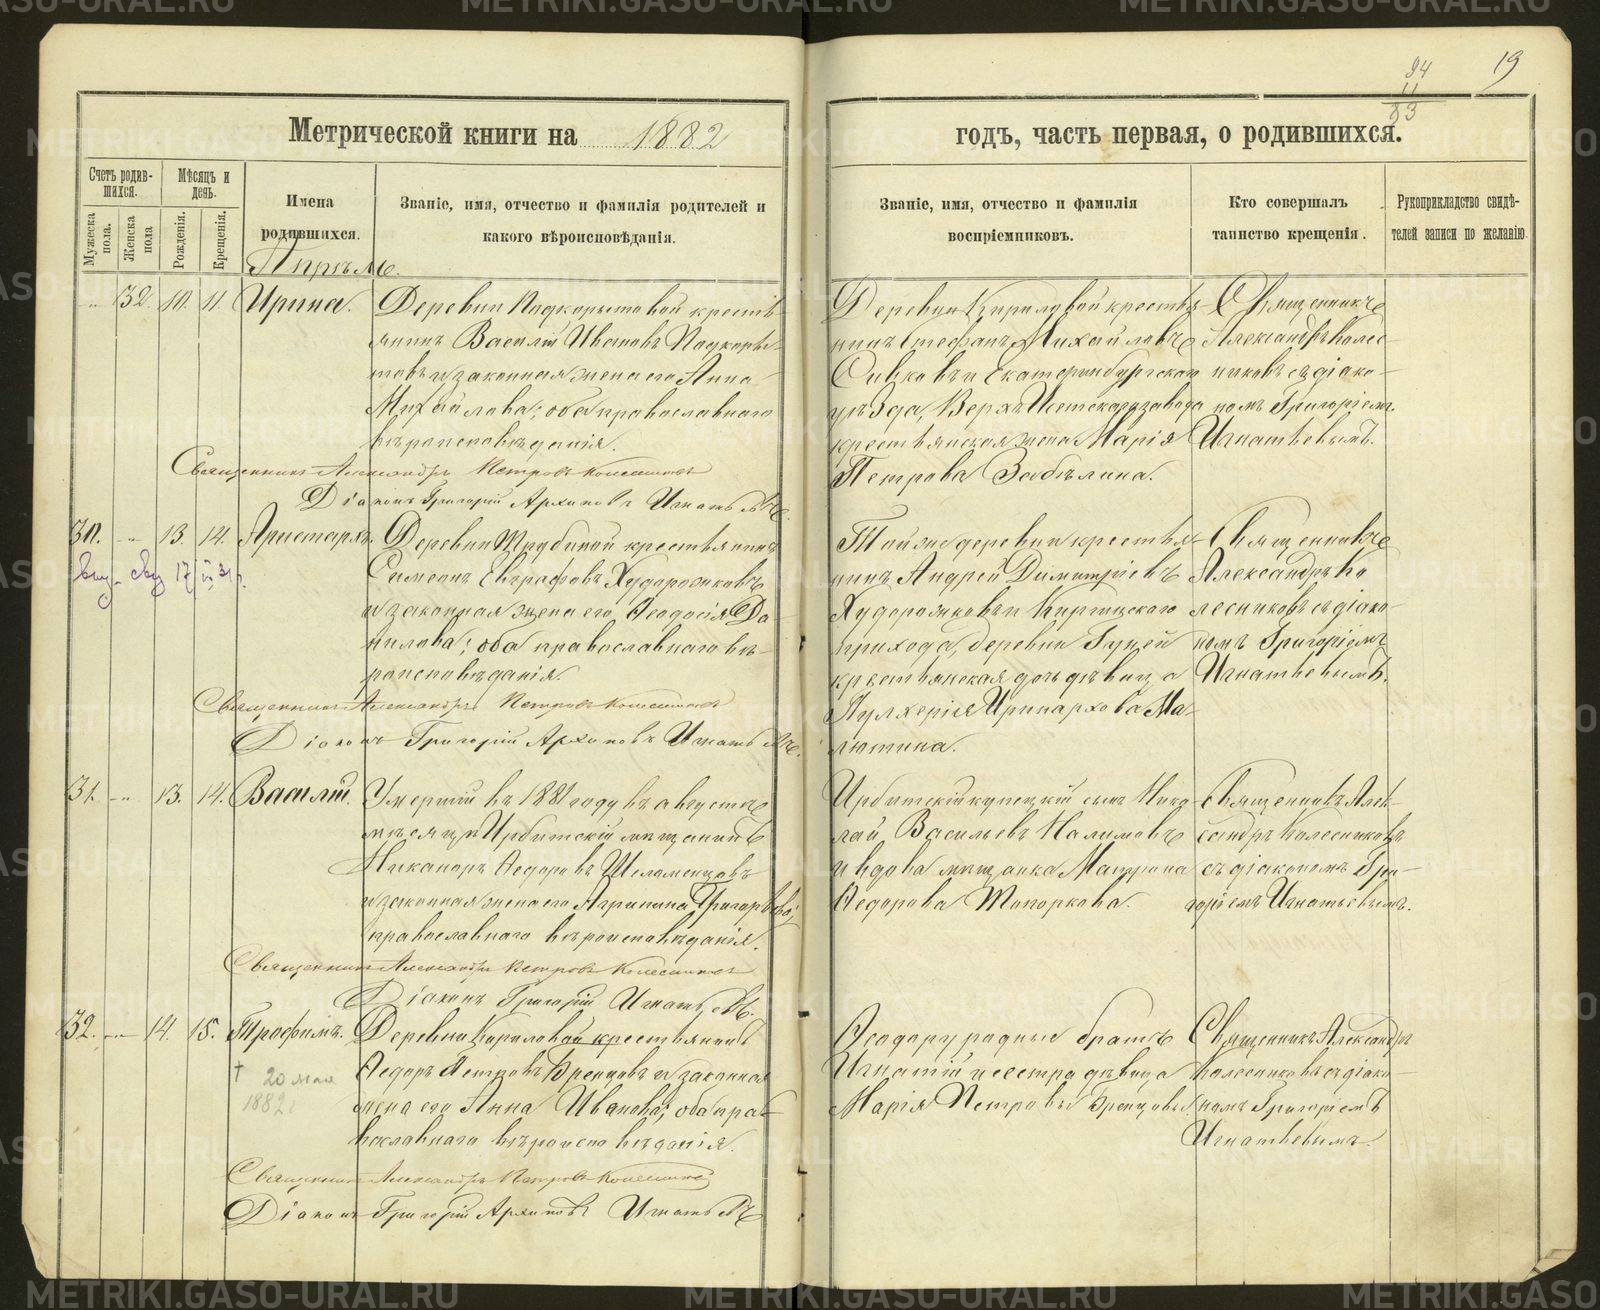 94
11
83
19
Метрической книги на 1882
годъ, часть первая, о родившихся.
Счетъ родив-
шихся.
Мѣсяцъ и
день.
Мужеска
пола.
Женска
пола
Рожденія.
Крещенія.
Имена
родившихся.
Званіе, имя, отчество и фамилія родителей и
какого вѣроисповѣданія.
Званіе, имя, отчество и фамилія
воспріемниковъ.
Кто совершалъ
таинство крещенія.
Рукоприкладство свидѣ-
телей записи по желанію.
Апрѣль.
„ 32 10. 11. Ирина.
Деревни Подкорытовой кресть-
янинъ Василій Ивановъ Подкоры-
товъ и законная жена его Анна
Михайлова; оба православнаго
вѣроисповѣданія.
Священникъ Александръ Петровъ Колесниковъ
Діаконъ Григорій Архиповъ Игнатьевъ.
Деревни Кириловой крестья-
нинъ Стефанъ Михайловъ
Сивковъ и Екатеринбургскаго
уѣзда, Верхъ Исетскаго завода
крестьянская жена Марія
Петрова Забѣлина.
Священникъ
Александръ Колес-
никовъ съ діако-
номъ Григоріемъ
Игнатьевымъ.
30. „ 13 14. Аристархъ.
Деревни Трубиной крестьянинъ
Симеонъ Евграфовъ Худорожковъ
и законная жена его Ѳеодосія Да-
нилова; оба православнаго вѣ-
роисповѣданія.
Священникъ Александръ Петровъ Колесниковъ
Діаконъ Григорій Архиповъ Игнатьевъ.
Той же деревни крестья-
нинъ Андрей Димитріевъ
Худорожковъ и Киргишскаго
прихода, деревни Гуней
крестьянская дочь дѣвица
Пулхерія Иринархова Ма-
лютина.
Священникъ
Александръ Ко
лесниковъ съ діако-
номъ Григоріемъ
Игнатьевымъ.
31. „ 13. 14. Василій.
Умершій въ 1881 году въ августѣ
мѣсяцѣ Ирбитскій мѣщанинъ
Никаноръ Ѳедоровъ Шеломенцовъ
и законная жена его Агрипина Григорьева;
православнаго вѣроисповѣданія.
Священникъ Александръ Петровъ Колесниковъ
Діаконъ Григорій Игнатьевъ.
Ирбитскій купецкій сынъ Нико
лай Васильевъ Налимовъ
и вдова мѣщанка Матрона
Ѳедорова Топоркова.
Священникъ Алек-
сандръ Колесниковъ
съ діакономъ Гри-
горіемъ Игнатьевымъ.
32. „ 14. 15. Трофимъ.
† 20 мая
1882
Деревни Кириловой крестьянинъ
Ѳедоръ Петровъ Бренцовъ и законная
жена его Анна Иванова; оба пра-
вославнаго вѣроисповѣданія.
Священникъ Александръ Петровъ Колесниковъ
Діаконъ Григорій Архиповъ Игнатьевъ
Ѳеодору родные братъ
Игнатій и сестра дѣвица
Марія Петровы Бренцовы.
Священникъ Александръ
Колесниковъ съ діако-
номъ Григоріемъ
Игнатьевымъ.